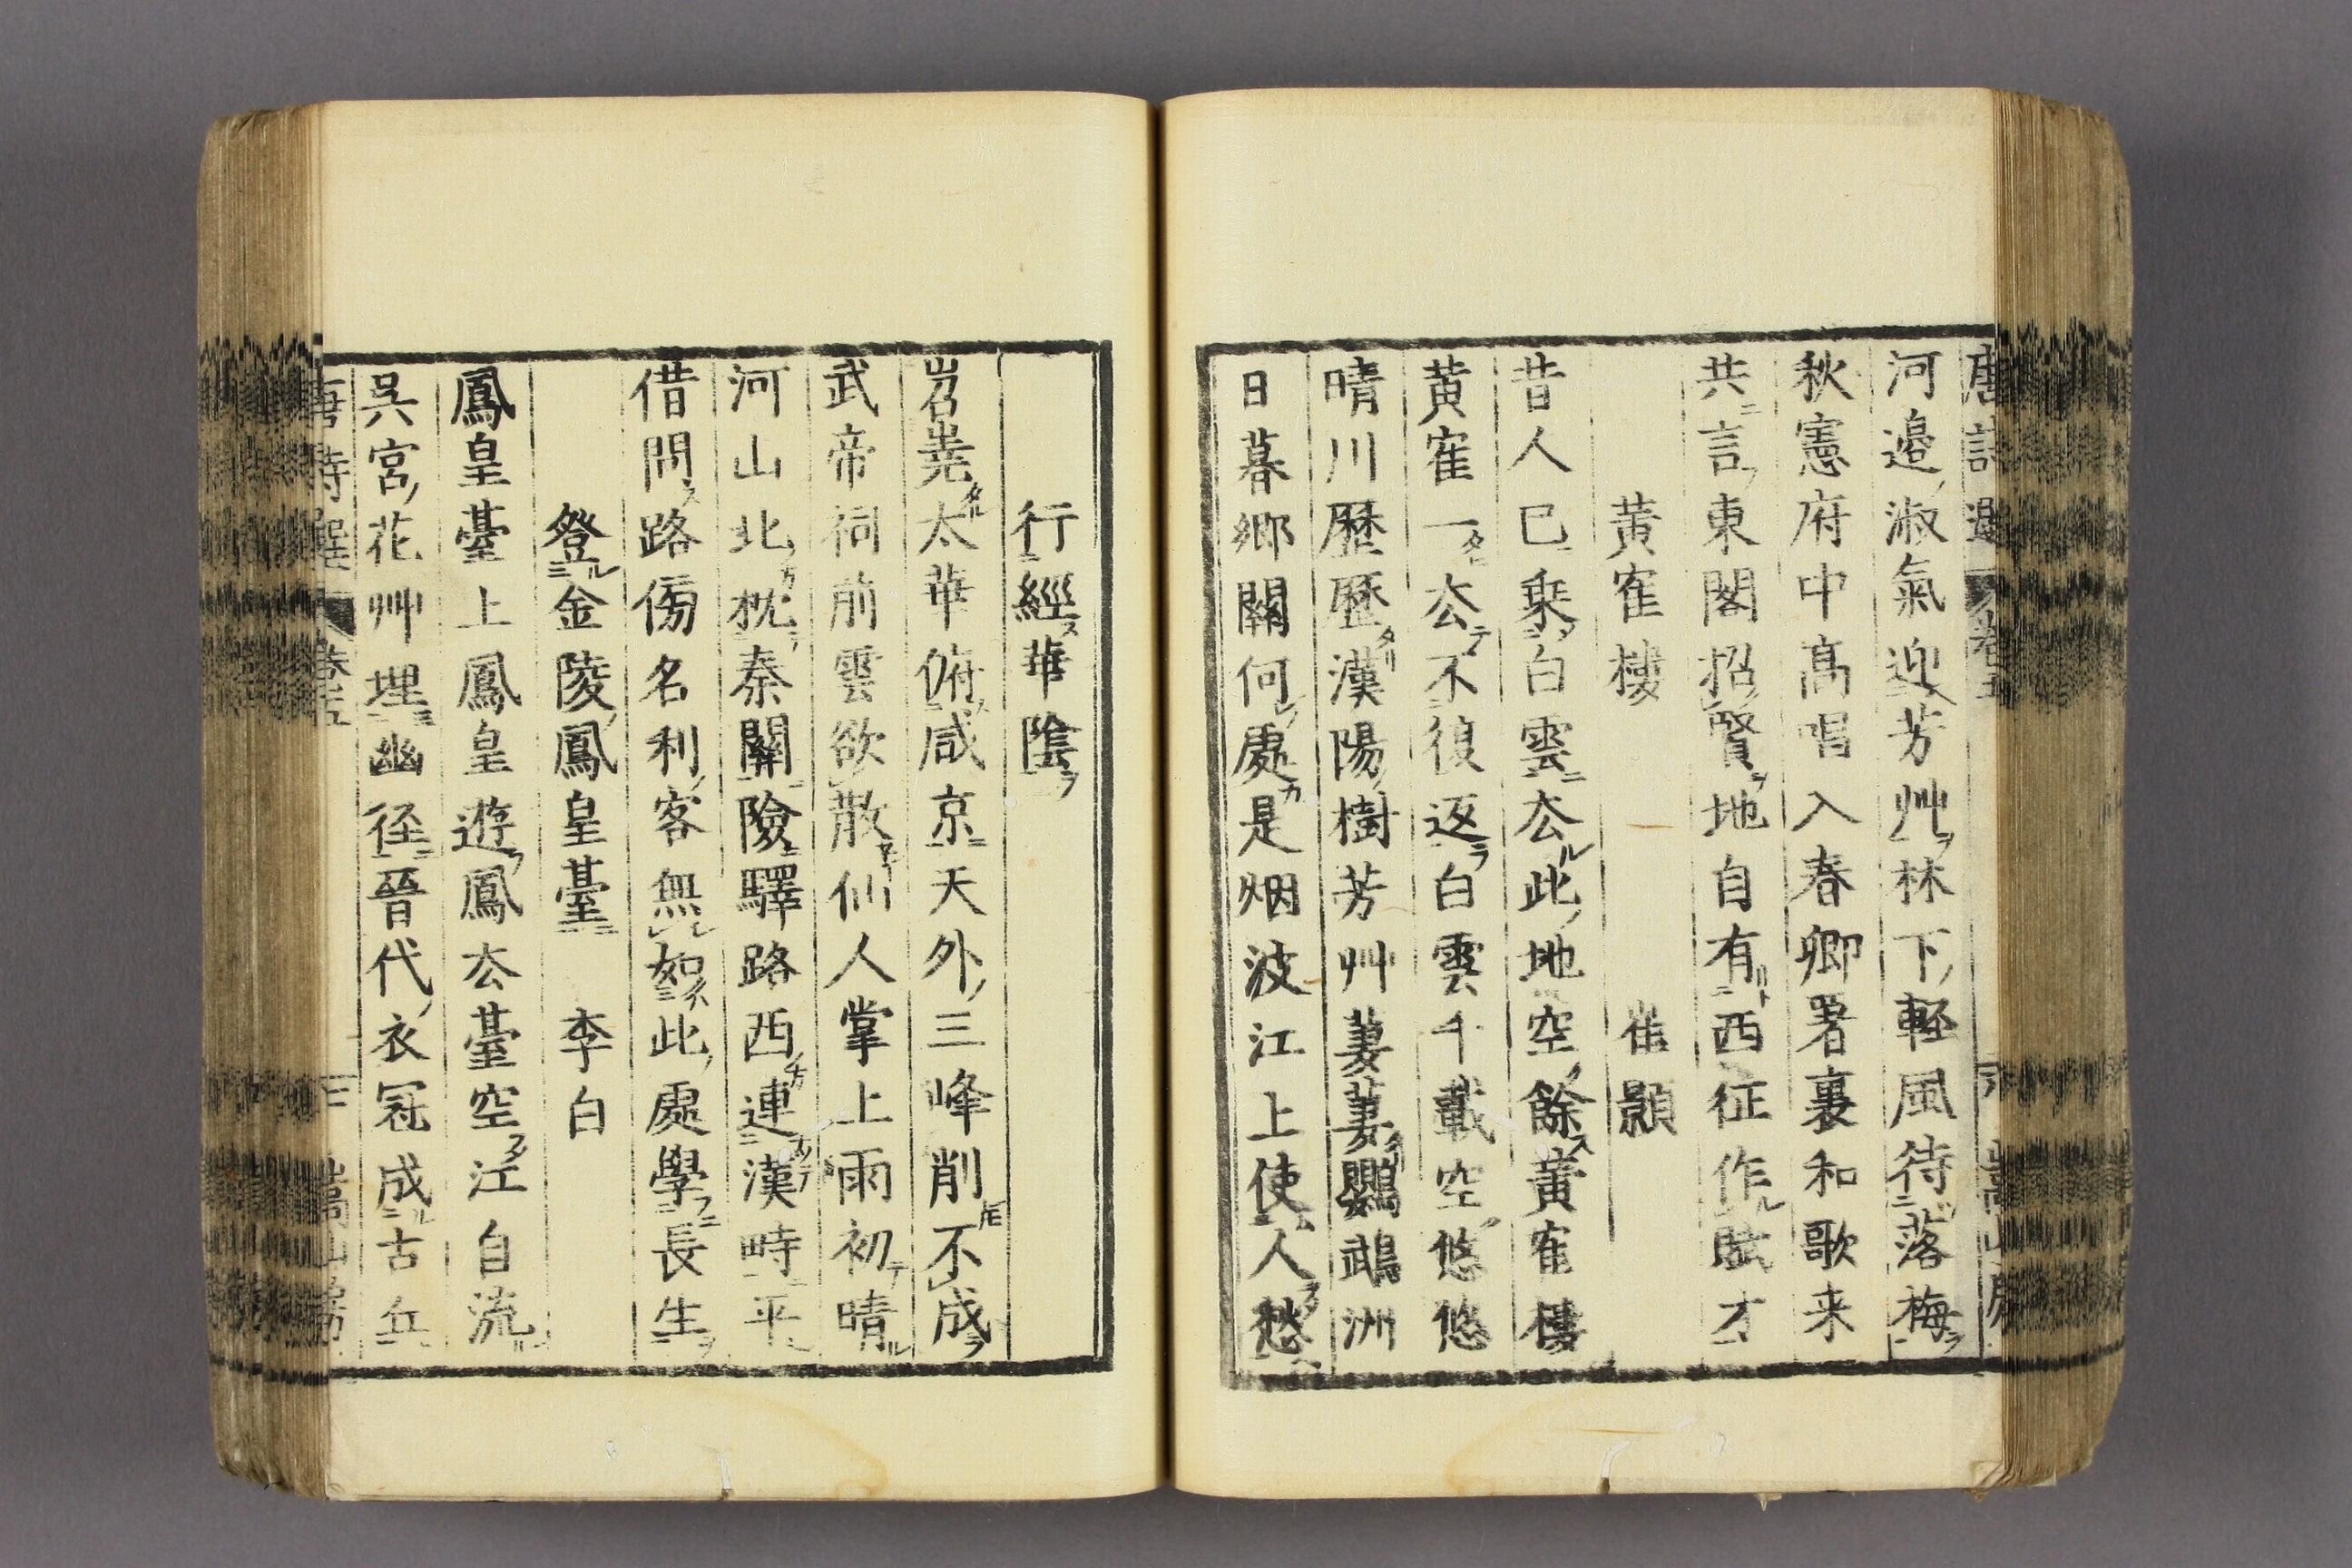 唐詩選 卷五 嵩山房
河邉淑氣迎芳艸林下輕風待落梅
秋憲府中髙唱入春卿署裏和歌来
共言東閣招賢地自有西征作賦才
黄隺樓 崔顥
昔人已乗白雲厺此地空餘黄隺樓
黄隺一厺不復返白雲千載空悠悠
晴川歷歷漢陽樹芳艸萋萋鸚鵡洲
日暮鄉關何處是烟波江上使人愁
行經華隂
岧嶤太華俯咸京天外三峰削不成
武帝祠前雲欲散仙人掌上雨初晴
河山北枕秦關險驛路西連漢畤平
借問路傍名利客無如此處學長生
登金陵鳳皇臺 李白
鳳皇臺上鳳皇遊鳳厺臺空江自流
吳宮花艸埋幽径晉代衣冠成古丘
唐詩選 卷五 嵩山房